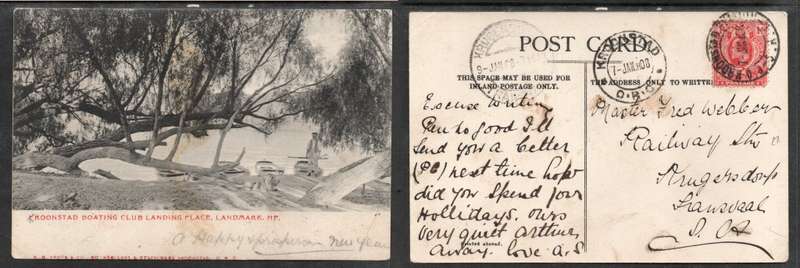 KROONSTAD BOATING CLUB LANDING PLACE, LANDMARK. HP.
A Happy & prosperous New Year
POST CARD
THIS SPACE MAY BE USED FOR
INLAND POSTAGE ONLY.
THE ADDRESS ONLY TO WRITTEN
KROONSTAD
7-JAN 08
O.R.C.
Excuse writing
Pen to good I'll
Send you a better
(PC) next time hope
did you spend your
Hollidays. ours
very quiet arthur
away. love a.S
Printed abroad.
Master Fred Webber
Railway Stn
Krugersdorp
Transvaal
S. A